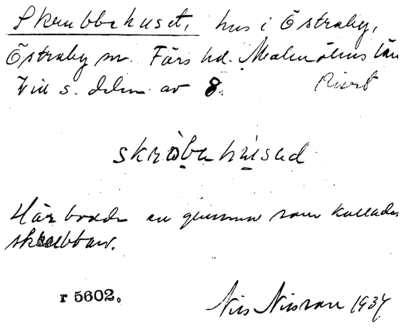 Skrubbehuset, hus i Östraby,
Östraby sn. Färs hd. Malmöhus län
Till s. delen av 8. Rivet
skròbehúsed
Här bodde en gumma som kallades
skrubban.
r 5602. Nils Nilsson 1937